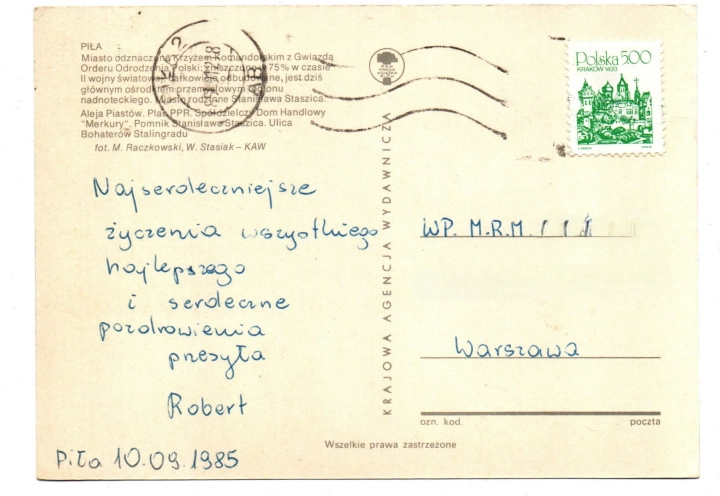 PIŁA
Miasto odznaczone Krzyżem Komandorskim z Gwiazdą
Orderu Odrodzenia Polski, zniszczone w 75% w czasie
II wojny światowej, całkowicie odbudowane, jest dziś
głównym ośrodkiem przemysłowym regionu
nadnoteckiego. Miasto rodzinne Stanisława Staszica.
Aleja Piastów. Plac PPR. Spółdzielczy Dom Handlowy
"Merkury". Pomnik Stanisława Staszica. Ulica
Bohaterów Stalingradu
fot. M. Raczkowski, W. Stasiak – KAW
Polska 5,00
KRAKÓW 1493
Najserdeczniejsze
życzenia wszystkiego
najlepszego
i serdeczne
pozdrowienia
przesyła
Robert
Piła 10.09.1985
KRAJOWA AGENCJA WYDAWNICZA
WP. M.R.M.
Warszawa
ozn. kod. poczta
Wszelkie prawa zastrzeżone